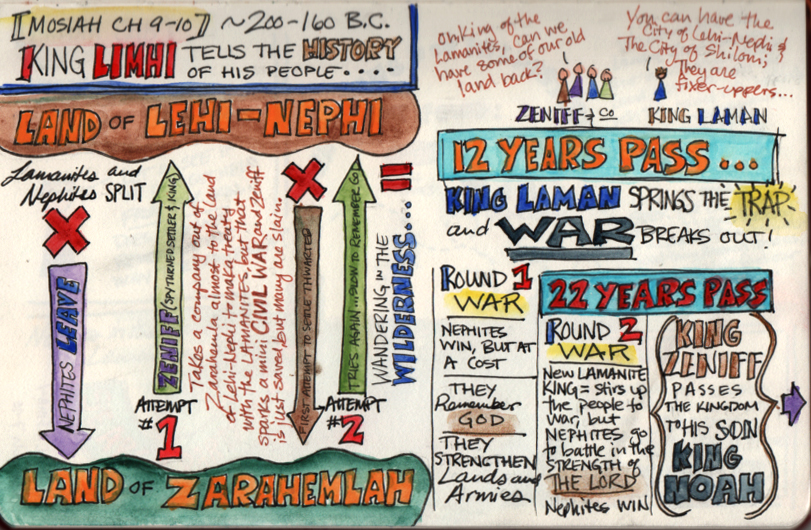 [MOSIAH CH 9-10] ~200-160 B.C.
KING LIMHI TELLS THE HISTORY
OF HIS PEOPLE....
LAND OF LEHI-NEPHI
Lamanites and
Nephites SPLIT
NEPHITES LEAVE
ZENIFF (SPY TURNED SETTLER & KING)
ATTEMPT
#1
Takes a company out of
Zarahemla almost to the land
of Lehi-Nephi to make treaty
with the LAMANITES, but that
sparks a mini CIVIL WAR and Zeniff
is just saved, but many are slain.
FIRST ATTEMPT TO SETTLE THWARTED
TRIES AGAIN...SLOW TO REMEMBER GOD
ATTEMPT
#2
WANDERING IN THE
WILDERNESS...
LAND OF ZARAHEMLAH
Oh, King of the
Lamanites, can we
have some of our old
land back?
ZENIFF & CO
You can have the
City of Lehi-Nephi &
The City of Shilom;
They are
fixer-uppers...
KING LAMAN
12 YEARS PASS...
KING LAMAN SPRINGS THE TRAP
and WAR BREAKS OUT!
ROUND 1
WAR
NEPHITES
WIN, BUT AT
A COST
THEY
Remember
GOD
THEY
STRENGTHEN
Lands and
Armies
22 YEARS PASS
ROUND 2
WAR
NEW LAMANITE
KING = stirs up
the people to
war, but
NEPHITES go
to battle in the
STRENGTH of
THE LORD
Nephites WIN
KING
ZENIFF
PASSES
THE KINGDOM
TO HIS SON
KING
NOAH